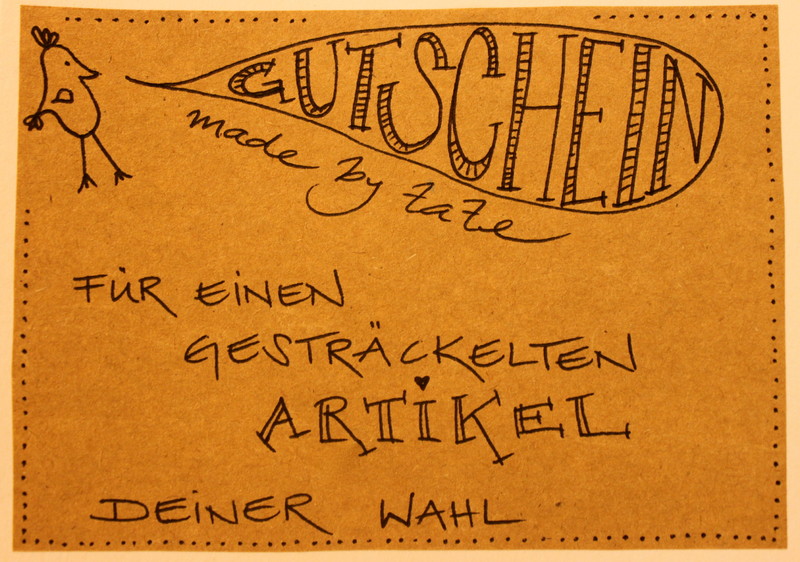 GUTSCHEIN
made by zaze
FÜR EINEN
GESTRÄCKELTEN
ARTIKEL
DEINER WAHL